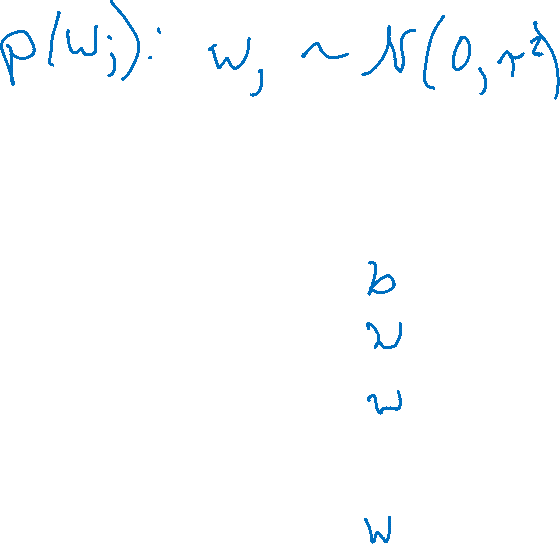 p(wj): wj ~ N(0, τ²)
b
w
w
w